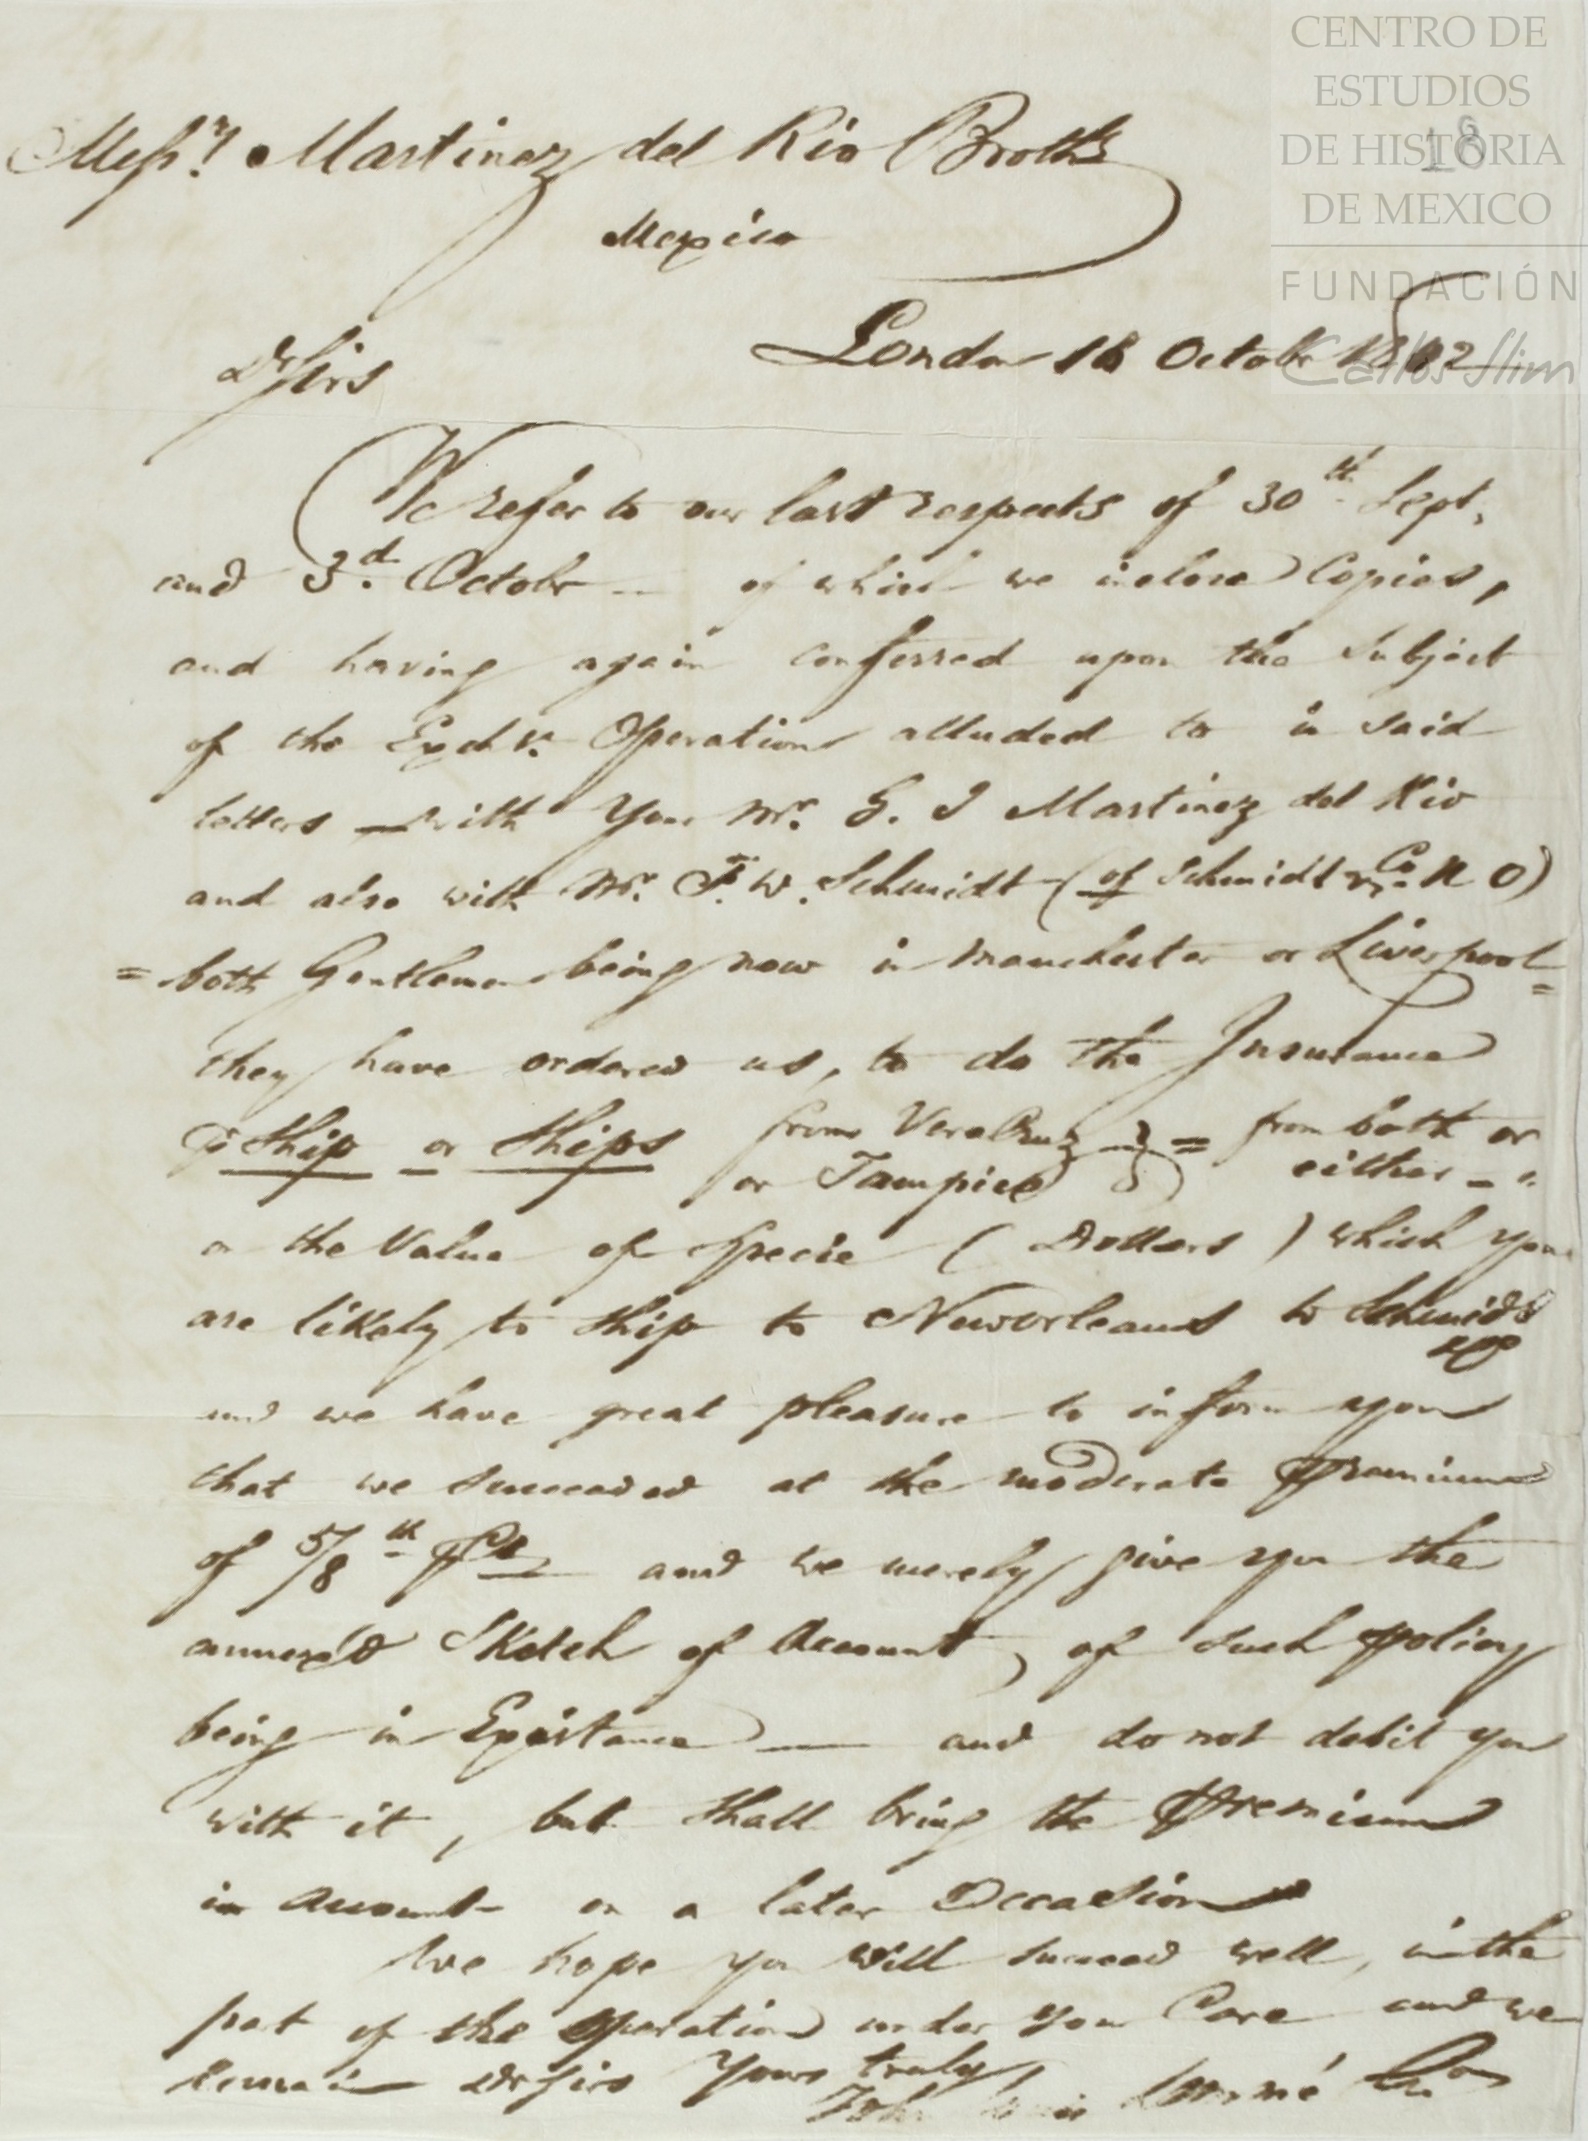 CENTRO DE
ESTUDIOS
DE HISTORIA
DE MEXICO
FUNDACIÓN
Carlos Slim
18
Messrs. Martinez del Rio Broths
Mexico
London 18 October 1842
Dr Sirs
We refer to our last respects of 30th Sept.
and 3d. Octobr — of which we inclose Copies,
and having again conferred upon the Subject
of the Exch. Operation alluded to in said
letters — with Your Mr. G. J Martinez del Rio
and also with Mr. F. W. Schmidt (of Schmidt & Co. N O)
= both Gentlemen being now in Manchester or Liverpool =
they have ordered us, to do the Insurance
P Ship or Ships from Vera Cruz = from both or
or Tampico either —
on the Value of Specie (Dollars) which you
are likely to ship to Neworleans to Schmidt
&Co
and we have great pleasure to inform you
that we succeeded at the moderate Premium
of 5/8 th p Ct and we merely give you the
annex'd Sketch of Account, of such policy
being in Existance — and do not debit you
with it, but shall bring the Premium
in Account on a later Occasion
We hope you will succeed well, in the
part of the operation under your Care and we
remain Dr Sirs Yours truly
John Lemmé Co